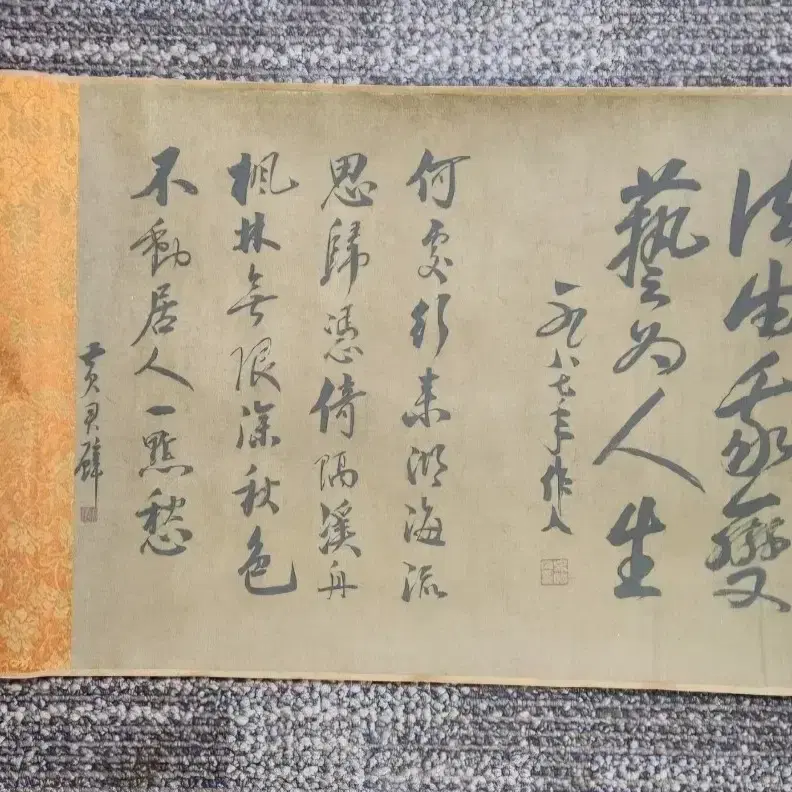 法生變
藝為人生
一九八七年作人
何處行來湖海流
思歸憑倚隔溪舟
楓林無限深秋色
不動居人一點愁
黃君璧